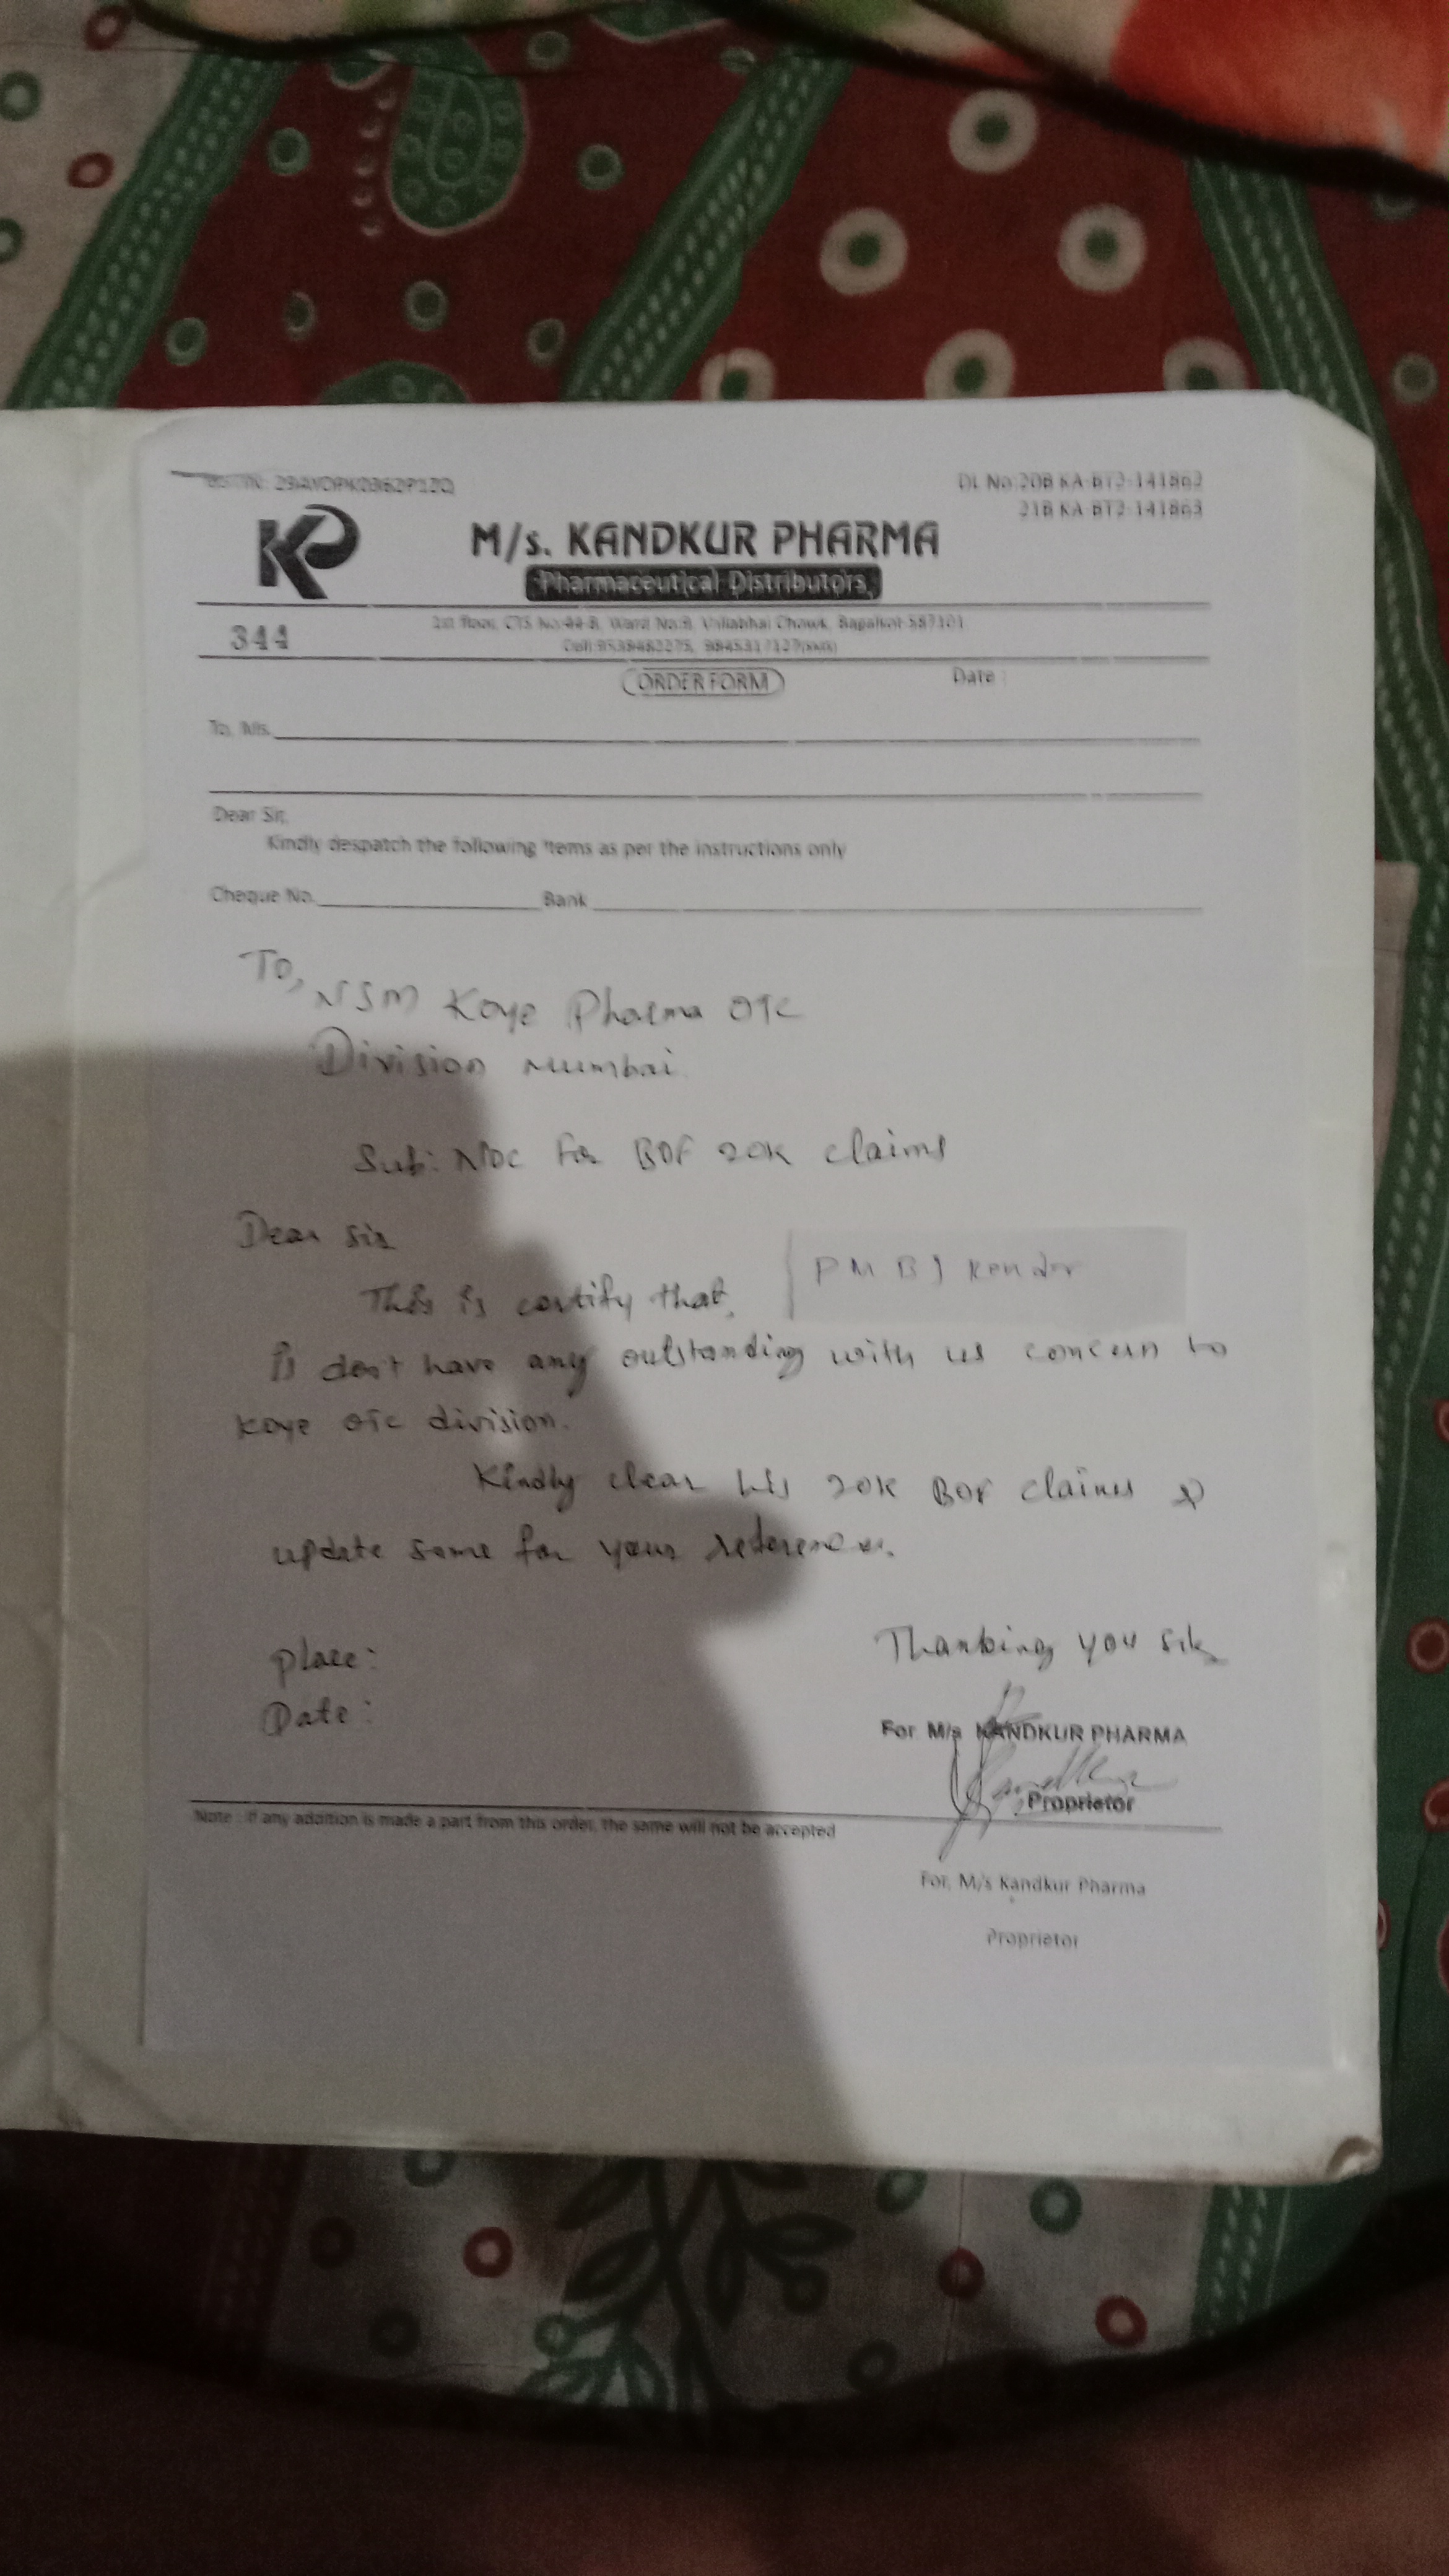 DL No:20B KA-BT2-141862
21B KA-BT2-141863
KP
M/s. KANDKUR PHARMA
Pharmaceutical Distributors,
344
1st floor, CTS No:44-B, Ward No:9, Vallabhai Chowk, Bagalkot-587101
ORDER FORM
Date :
To, M/s.
Dear Sir,
Kindly despatch the following items as per the instructions only
Cheque No. Bank
To,
NSM Koye Pharma OTC
Division Mumbai.
Sub: NOC for BOF 20K claims
Dear Sir
This is certify that, PMBJ Kendr
is don't have any outstanding with us concern to
Koye OTC division.
Kindly clear his 20K BOF claims &
update same for your reference.
Thanking you sir
place:
Date:
For M/s KANDKUR PHARMA
Proprietor
Note : If any addition is made a part from this order, the same will not be accepted
For, M/s Kandkur Pharma
Proprietor